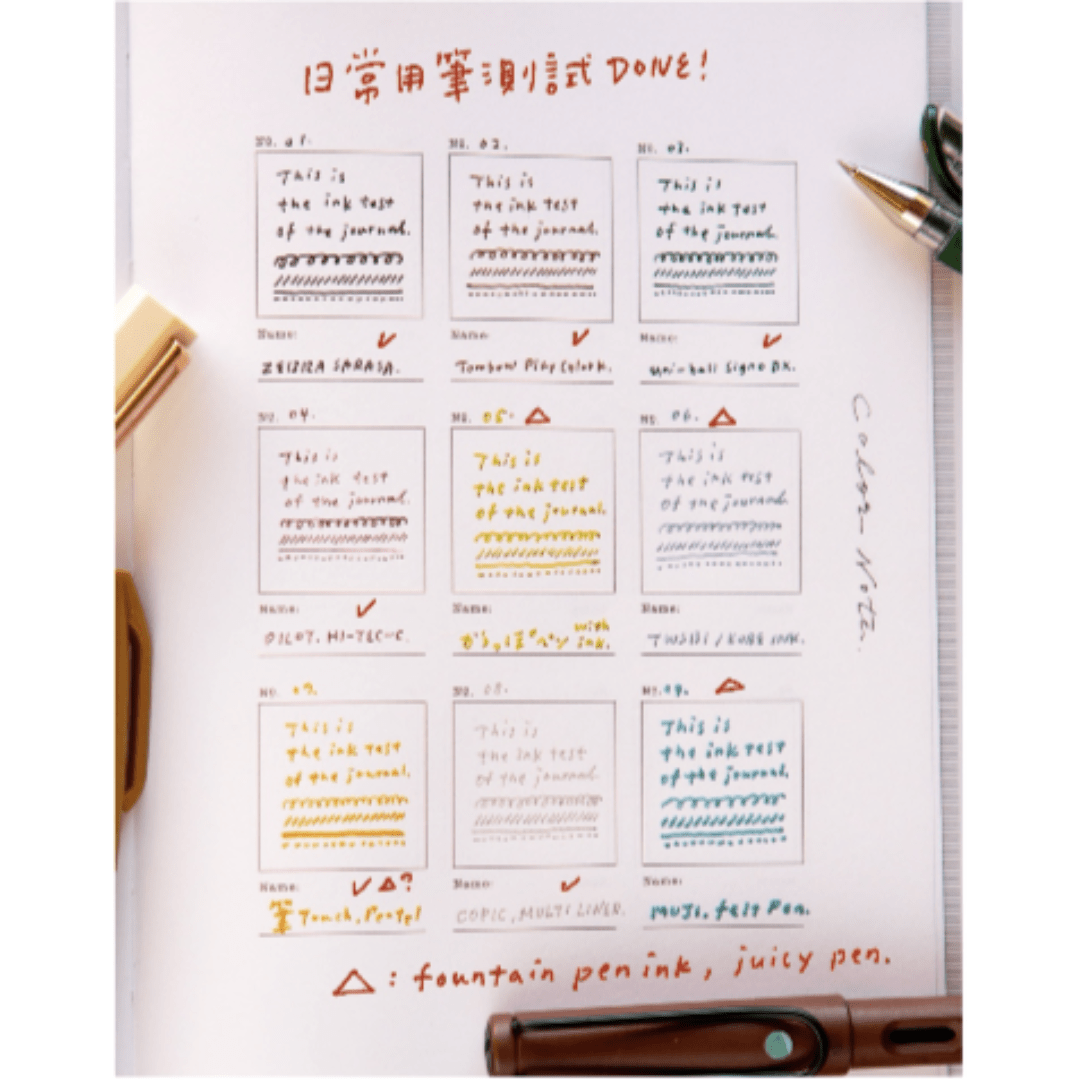 日常用筆測試 DONE!
No. 01.
This is
the ink test
of the journal.
Name:
ZEBRA SARASA.
No. 02.
This is
the ink test
of the journal.
Name:
Tombow Play Color K.
No. 03.
This is
the ink test
of the journal.
Name:
Uni-ball Signo DX.
No. 04.
This is
the ink test
of the journal.
Name:
PILOT. HI-TEC-C.
No. 05.
This is
the ink test
of the journal.
Name:
からっぽペン with
ink.
No. 06.
This is
the ink test
of the journal.
Name:
TWSBI / KOBE INK.
No. 07.
This is
the ink test
of the journal.
Name:
?
筆 Touch. Pentel
No. 08.
This is
the ink test
of the journal.
Name:
COPIC. MULTI LINER.
No. 09.
This is
the ink test
of the journal.
Name:
MUJI. felt Pen.
△: fountain pen ink, juicy pen.
Note.